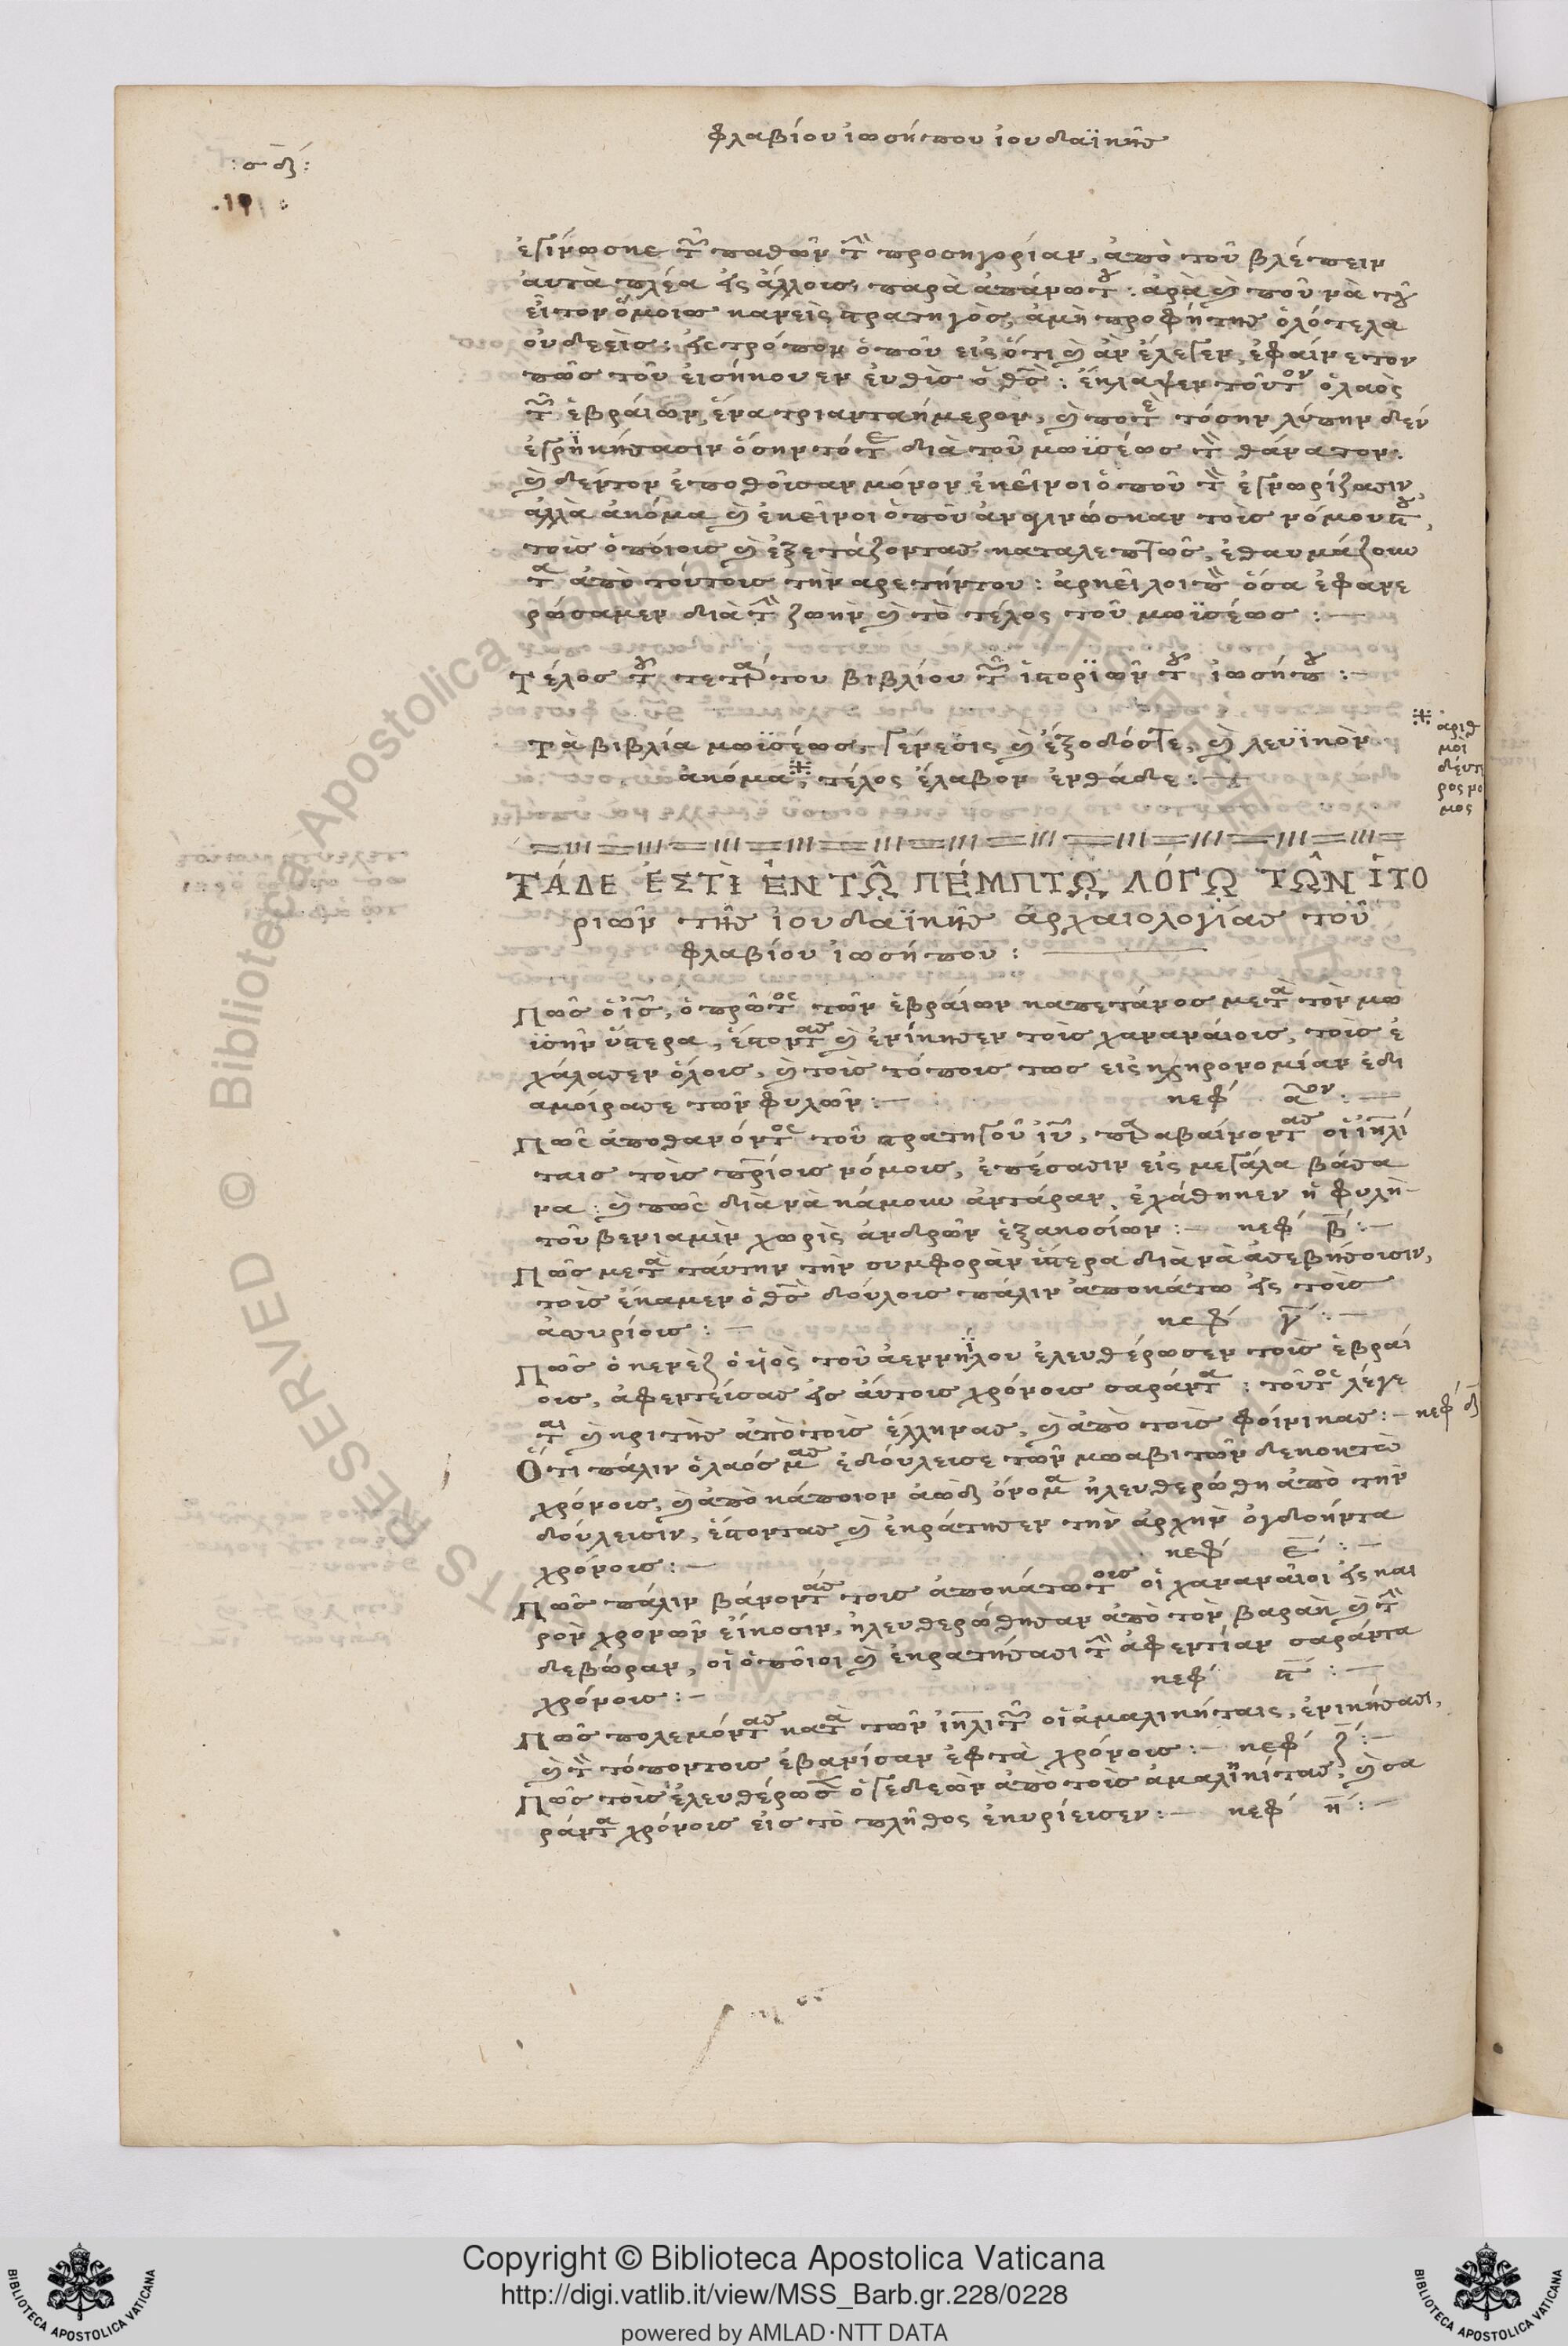 φλαβίου ἰωσήπου ἰουδαϊκῆς
: σδ :
. 191 :
ἐγίνωσκε τῶν παθῶν τὴν προσηγορίαν, ἀπὸ τοῦ βλέπειν
ἀυτὰ πλέα εἰς ἄλλοις παρὰ ἀπάνωτου : ἀρὰ καὶ ποῦ νὰ τοῦ
εἶτον ὅμοιος κανεὶς στρατηγὸς, ἀμὴ προφήτης ὁλότελα
οὐδεεὶς : εἰς τρόπον ὁποῦ εἰς ὅτι καὶ ἂν ἔλεγεν, ἐφαίνετον
πῶς τοῦ εἰσήκουεν ἐυθὶς ὁ θεὸς : ἔκλαψεν τοῦτον ὁ λαὸς
τῶν ἑβράιων, ἕνα τριανταήμερον, καὶ ποτὲ τόσην λύπην δέν
ἐγρικήσασιν ὅσην τότε διὰ τοῦ μωϊσέως τὸν θάνατον.
καὶ δέν τον ἐποθοῦσαν μόνον ἐκεῖνοι ὁποῦ τὸν ἐγνωρίζασιν,
ἀλλὰ ἀκόμα καὶ ἐκεῖνοι ὁποῦ ἀνεγινώσκαν τοὶς νόμους του,
τοὶς ὁποίοις καὶ ἐξετάζοντας καταλεπτῶς, ἐθαυμάζουν
τα ἀπὸ τούτοις τὴν αρετήν του : ἀρκεῖ λοιπὸν ὅσα ἐφανε
ρώσαμεν διὰ τὴν ζωὴν καὶ τὸ τέλος τοῦ μωϊσέως : —
Τέλος τοῦ τετάρτου βιβλίου τῶν ἱστοριῶν τοῦ ἰωσήπου : —
Τὰ βιβλία μωϊσέως, γένεσις καὶ ἔξοδόστε, καὶ λευϊκὸν
ἀκόμα ⁜, τέλος ἔλαβον ἐνθάδε : —
⁜ ἀριθ
μοὶ
δέυτε
ρος νο
μος
ΤΆΔΕ ἘΣΤῚ ἘΝ ΤΩ͂Ι ΠΈΜΠΤῼ ΛΌΓῼ ΤΩ͂Ν ἹΣΤΟ
ριῶν τῆς ἰουδαϊκῆς ἀρχαιολογίας τοῦ
φλαβίου ἰωσήπου : —
Πῶς ὁ ἰησοῦς, ὁ πρῶτος τῶν ἑβράιων καπετάνος μετὰ τὸν μω
ϊσῆν ὕστερα, ἔστοντας καὶ ἐνίκησεν τοὶς χαναναίοις, τοὶς ἐ
χάλασεν ὅλοις, καὶ τοὶς τόποις τως εἰς κληρονομίαν ἐδι
αμοίρασε τῶν φυλῶν : — κεφ´ α´ον : —
Πῶς ἀποθανόντος τοῦ στρατηγοῦ ἰησοῦ, παραβαίνοντας οἱ ἰσραηλί
ταις τοὶς πατρίοις νόμοις, ἐπέσασιν εἰς μεγάλα βάσα
να : καὶ πῶς διὰ νὰ κάμουν ἀντάραν, ἐχάθηκεν ἡ φυλὴ
τοῦ βενιαμὶν χωρὶς ἀνδρῶν ἑξακοσίων : — κεφ´ β´ : —
Πῶς μετὰ ταύτην τὴν συμφορὰν ὕστερα διὰ νὰ ἀσεβήσουσιν,
τοὶς ἔκαμεν ὁ θεὸς δούλοις πάλιν ἀποκάτω εἰς τοὶς
ἀσσυρίοις : — κεφ´ γ´ : —
Πῶς ὁ κενὲζ ὁ υἱὸς τοῦ ἀεκνήλου ἐλευθέρωσεν τοὶς ἑβραί
οις, ἀφεντέισας εἰς ἀύτοις χρόνοις σαράντα : τοῦτος λέγε
ται καὶ κριτὴς ἀπὸ τοὶς ἕλληνας, καὶ ἀπὸ τοὶς φοίνικας : — κεφ´ δ´
Ὅτι πάλιν ὁ λαός μας ἐδούλεισε τῶν μωαβιτῶν δεκοκτὼ
χρόνοις, καὶ ἀπὸ κάποιον ἀὼδ ὄνομα ἠλευθερώθη ἀπὸ τὴν
δούλεισιν, ἔστοντας καὶ ἐκράτησεν τὴν ἀρχὴν ὀγδοήντα
χρόνοις : — κεφ´ ε´ : —
Πῶς πάλιν βάνοντάς τοις ἀποκάτωτοις οἱ χαναναῖοι εἰς και
ρὸν χρονῶν εἴκοσιν, ἠλευθερώθησαν ἀπὸ τὸν βαρὰκ καὶ τὴν
δεβώραν, οἱ ὁποῖοι καὶ ἐκρατήσασι τὴν ἀφεντίαν σαράντα
χρόνοις : — κεφ´ ϛ´ : —
Πῶς πολεμόντας κατὰ τῶν ἰσραηλιτῶν οἱ ἀμαλικήταις, ἐνικήσασι,
καὶ τὸν τόπον τοις ἐβανίσαν ἑφτὰ χρόνοις : — κεφ´ ζ´ : —
Πῶς τοὶς ἐλευθέρωσε ὁ γεδεὼν ἀπὸ τοὶς ἀμαλικίτας, καὶ σα
ράντα χρόνοις εἰς τὸ πλῆθος ἐκυρίεισεν : — κεφ´ η´ : —
Copyright © Biblioteca Apostolica Vaticana
http://digi.vatlib.it/view/MSS_Barb.gr.228/0228
powered by AMLAD·NTT DATA